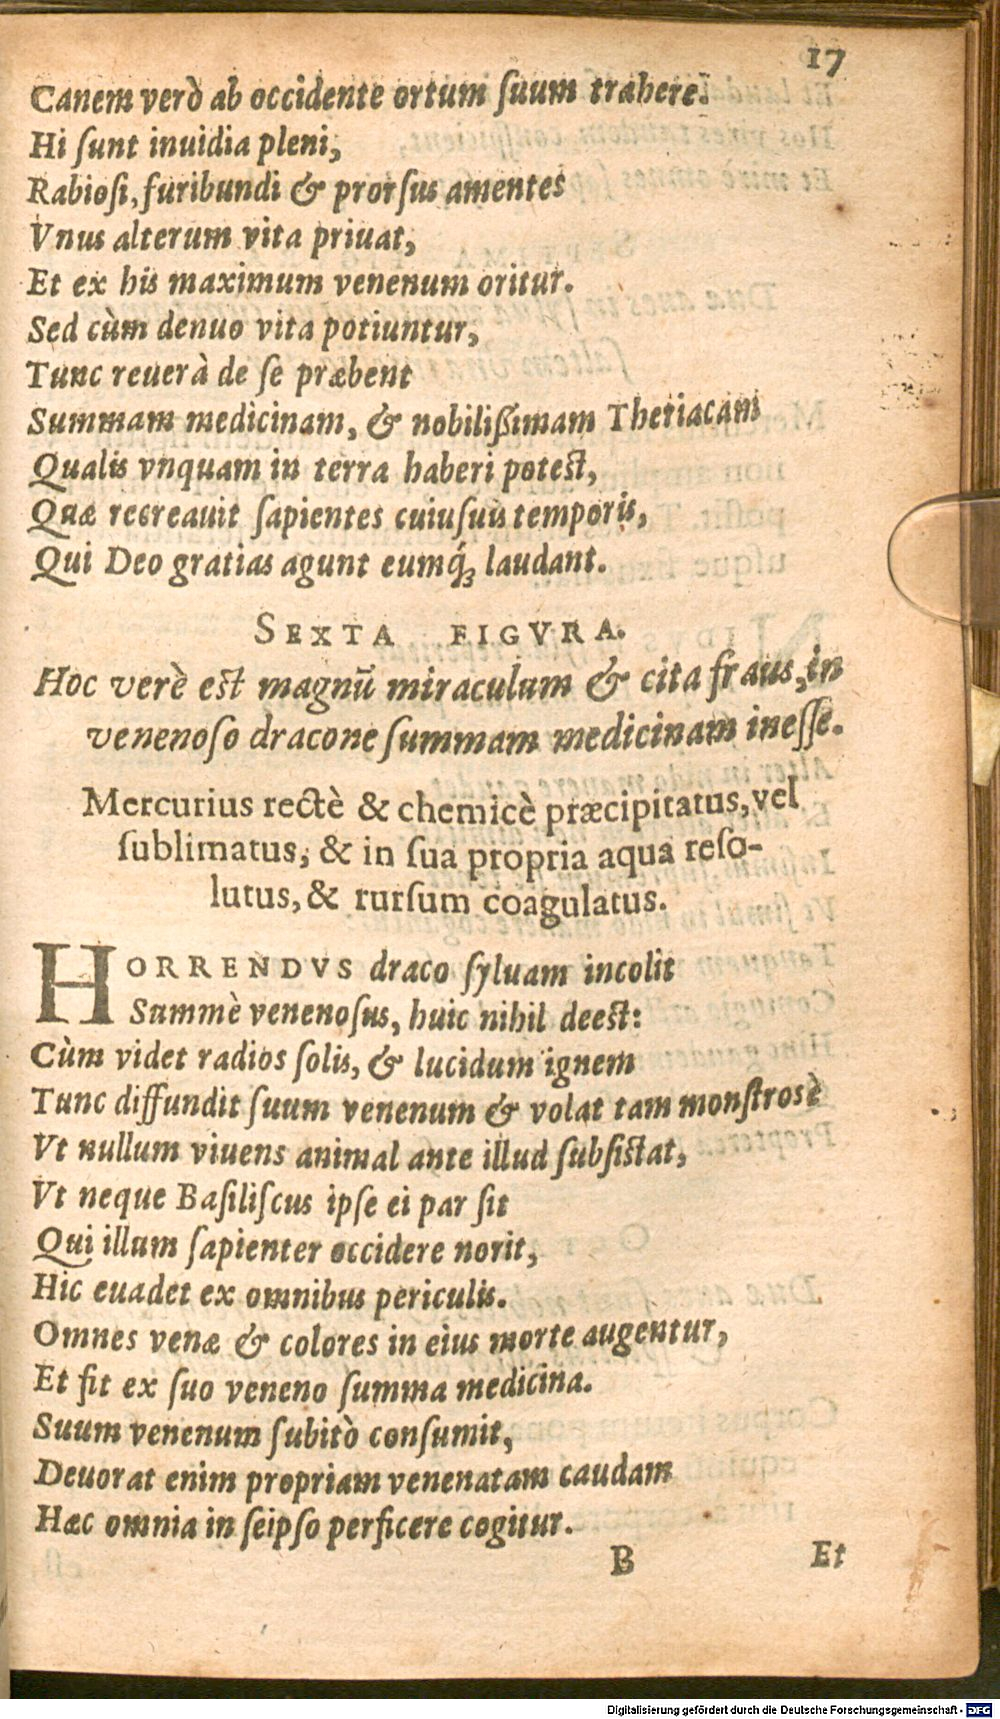 17
Canem verò ab occidente ortum ſuum trahere.
Hi ſunt inuidia pleni,
Rabioſi, furibundi & prorſus amentes
Vnus alterum vita priuat,
Et ex his maximum venenum oritur.
Sed cùm denuo vita potiuntur,
Tunc reuerà de ſe præbent
Summam medicinam, & nobilißimam Theriacam
Qualis vnquam in terra haberi potest,
Quæ recreauit ſapientes cuiuſuis temporis,
Qui Deo gratias agunt eumq́; laudant.
SEXTA FIGVRA.
Hoc verè est magnũ miraculum & cita fraus, in
venenoſo dracone ſummam medicinam ineſſe.
Mercurius rectè & chemicè præcipitatus, vel
ſublimatus, & in ſua propria aqua reſo-
lutus, & rurſum coagulatus.
HORRENDVS draco ſyluam incolit
Summè venenoſus, huic nihil deest:
Cùm videt radios ſolis, & lucidum ignem
Tunc diffundit ſuum venenum & volat tam monſtrosè
Vt nullum viuens animal ante illud ſubſistat,
Vt neque Baſiliſcus ipſe ei par ſit
Qui illum ſapienter occidere norit,
Hic euadet ex omnibus periculis.
Omnes venæ & colores in eius morte augentur,
Et fit ex ſuo veneno ſumma medicina.
Suum venenum ſubitò conſumit,
Deuorat enim propriam venenatam caudam
Hæc omnia in ſeipſo perficere cogitur.
B Et
Digitalisierung gefördert durch die Deutsche Forschungsgemeinschaft - DFG